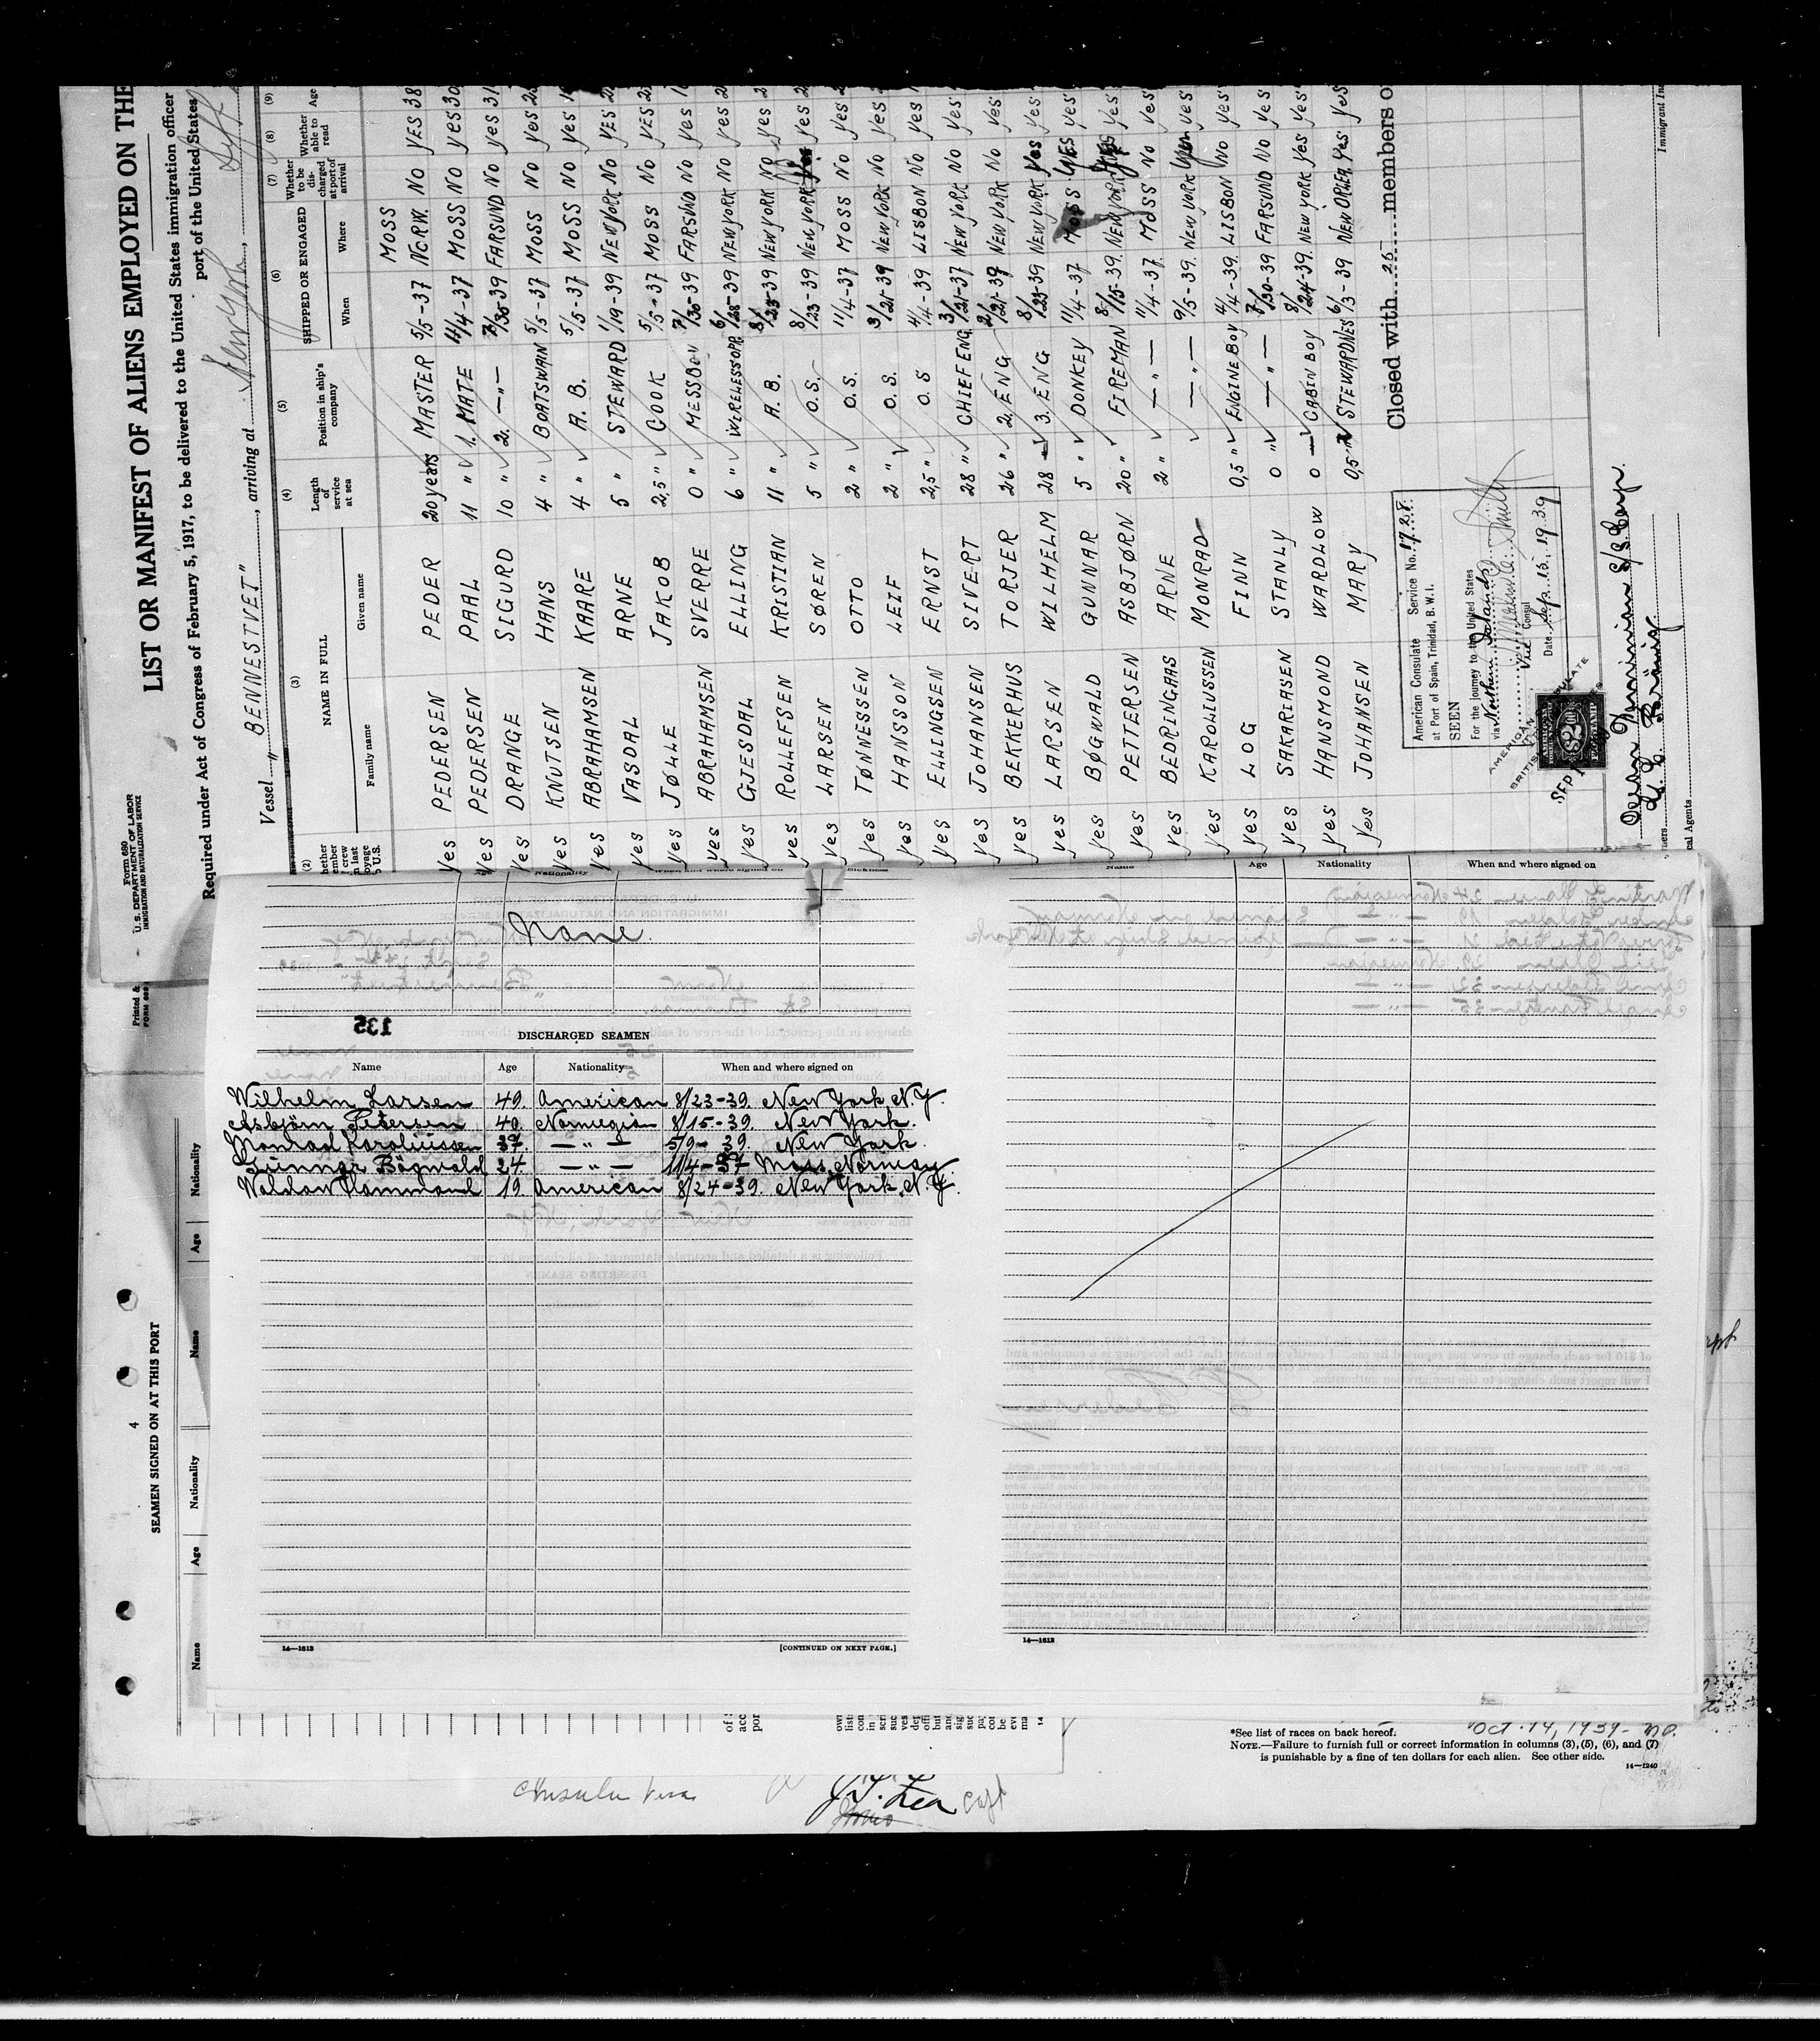 LIST OR MANIFEST OF ALIENS EMPLOYED ON THE
Required under Act of Congress of February 5, 1917, to be delivered to the United States immigration officer
port of the United States
Form 680
U. S. DEPARTMENT OF LABOR
IMMIGRATION AND NATURALIZATION SERVICE
Vessel " BENNESTVET", arriving at New York,
(2) (3) (4) (5) (6) (7) (8) (9)
NAME IN FULL
Family name Given name
Length of service at sea
Position in ship's company
SHIPPED OR ENGAGED
When Where
Whether to be discharged at port of arrival
Whether able to read
Age
MOSS
Yes PEDERSEN PEDER 20 years MASTER 5/5-37 NORW. No YES 38
Yes PEDERSEN PAAL 11 " 1. MATE 11/4-37 MOSS No Yes 30
Yes DRANGE SIGURD 10 " 2. —"— 7/30-39 FARSUND No Yes 31
Yes KNUTSEN HANS 4 " BOATSWAIN 5/5-37 MOSS No Yes
Yes ABRAHAMSEN KAARE 4 " A. B. 5/5-37 MOSS No Yes
Yes VASDAL ARNE 5 " STEWARD 1/19-39 NEW YORK No YES
Yes JØLLE JAKOB 2,5 " COOK 5/5-37 MOSS No YES
Yes ABRAHAMSEN SVERRE 0 " MESSBOY 7/30-39 FARSUND No Yes
Yes GJESDAL ELLING 6 " WIRELESSOPR 6/28-39 NEW YORK No Yes
Yes ROLLEFSEN KRISTIAN 11 " A. B. 8/23-39 NEW YORK No Yes
Yes LARSEN SØREN 5 " O. S. 8/23-39 NEW YORK Yes Yes
Yes TØNNESSEN OTTO 2 " O. S. 11/4-37 MOSS No Yes
Yes HANSSON LEIF 2 " O. S. 3/21-39 NEW YORK No Yes
Yes ELLINGSEN ERNST 2,5 " O. S 4/4-39 LISBON No Yes
Yes JOHANSEN SIVERT 28 " CHIEF ENG. 3/21-37 NEW YORK No Yes
Yes BEKKERHUS TORJER 26 " 2. ENG 2/21-39 NEW YORK No Yes
Yes LARSEN WILHELM 28 3. ENG 8/23-39 NEW YORK Yes Yes
Yes BØGWALD GUNNAR 5 " DONKEY 11/4-37 MOSS YES Yes
Yes PETTERSEN ASBJØRN 20 " FIREMAN 8/15-39. NEW YORK YES Yes
Yes BEDRINGAAS ARNE 2 " —"— 11/4-37. MOSS No Yes
Yes KAROLIUSSEN MONRAD —"— 9/5-39. NEW YORK Yes
Yes LOG FINN 0,5 " ENGINE BOY 4/4-39. LISBON No Yes
Yes SAKARIASEN STANLY 0 " —"— 7/30-39 FARSUND No Yes
Yes HANSMOND WARDLOW 0 — CABIN BOY 8/24-39. NEW YORK Yes Yes
Yes JOHANSEN MARY 0,5 STEWARDNES 6/3-39 NEW ORLEA Yes Yes
Closed with 25 members o
American Consulate Service No. 1728.
at Port of Spain, Trinidad, B. W. I.
SEEN
For the Journey to the United States
via
Vice Consul
Date Sep. 15. 1939
AMERICAN
$2
SEP 1
Immigrant In
cal Agents
None.
135
DISCHARGED SEAMEN
Name Age Nationality When and where signed on
Wilhelm Larsen 49. American 8/23-39. New York, N.Y.
Asbjörn Petersen 40. Norwegian 8/15-39. New York.
Monrad Karoliussen 37. —"— 5/9-39. New York.
Gunnar Bögwald 24. —"— 11/4-37 Moss, Norway.
Waldow Hammond 19. American 8/24-39. New York, N.Y.
14—1613 [CONTINUED ON NEXT PAGE.]
Name Age Nationality When and where signed on
14—1613
4
SEAMEN SIGNED ON AT THIS PORT
Name Age Nationality Name Age Nationality
*See list of races on back hereof.
Oct. 14, 1939-
NOTE.—Failure to furnish full or correct information in columns (3), (5), (6), and (7)
is punishable by a fine of ten dollars for each alien. See other side.
14—1240